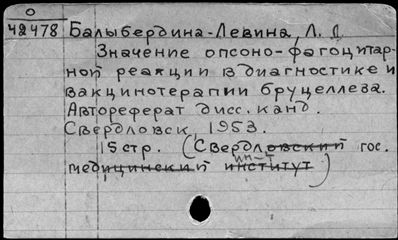 О
42478 Балыбердина-Левина, Л. Д
Значение опсоно-фагоцитар-
ной реакции в диагностике и
вакцинотерапии бруцеллеза.
Автореферат дисс. канд.
Свердловск, 1953.
15 стр. (Свердловский гос.
ин-т
медицинский институт)